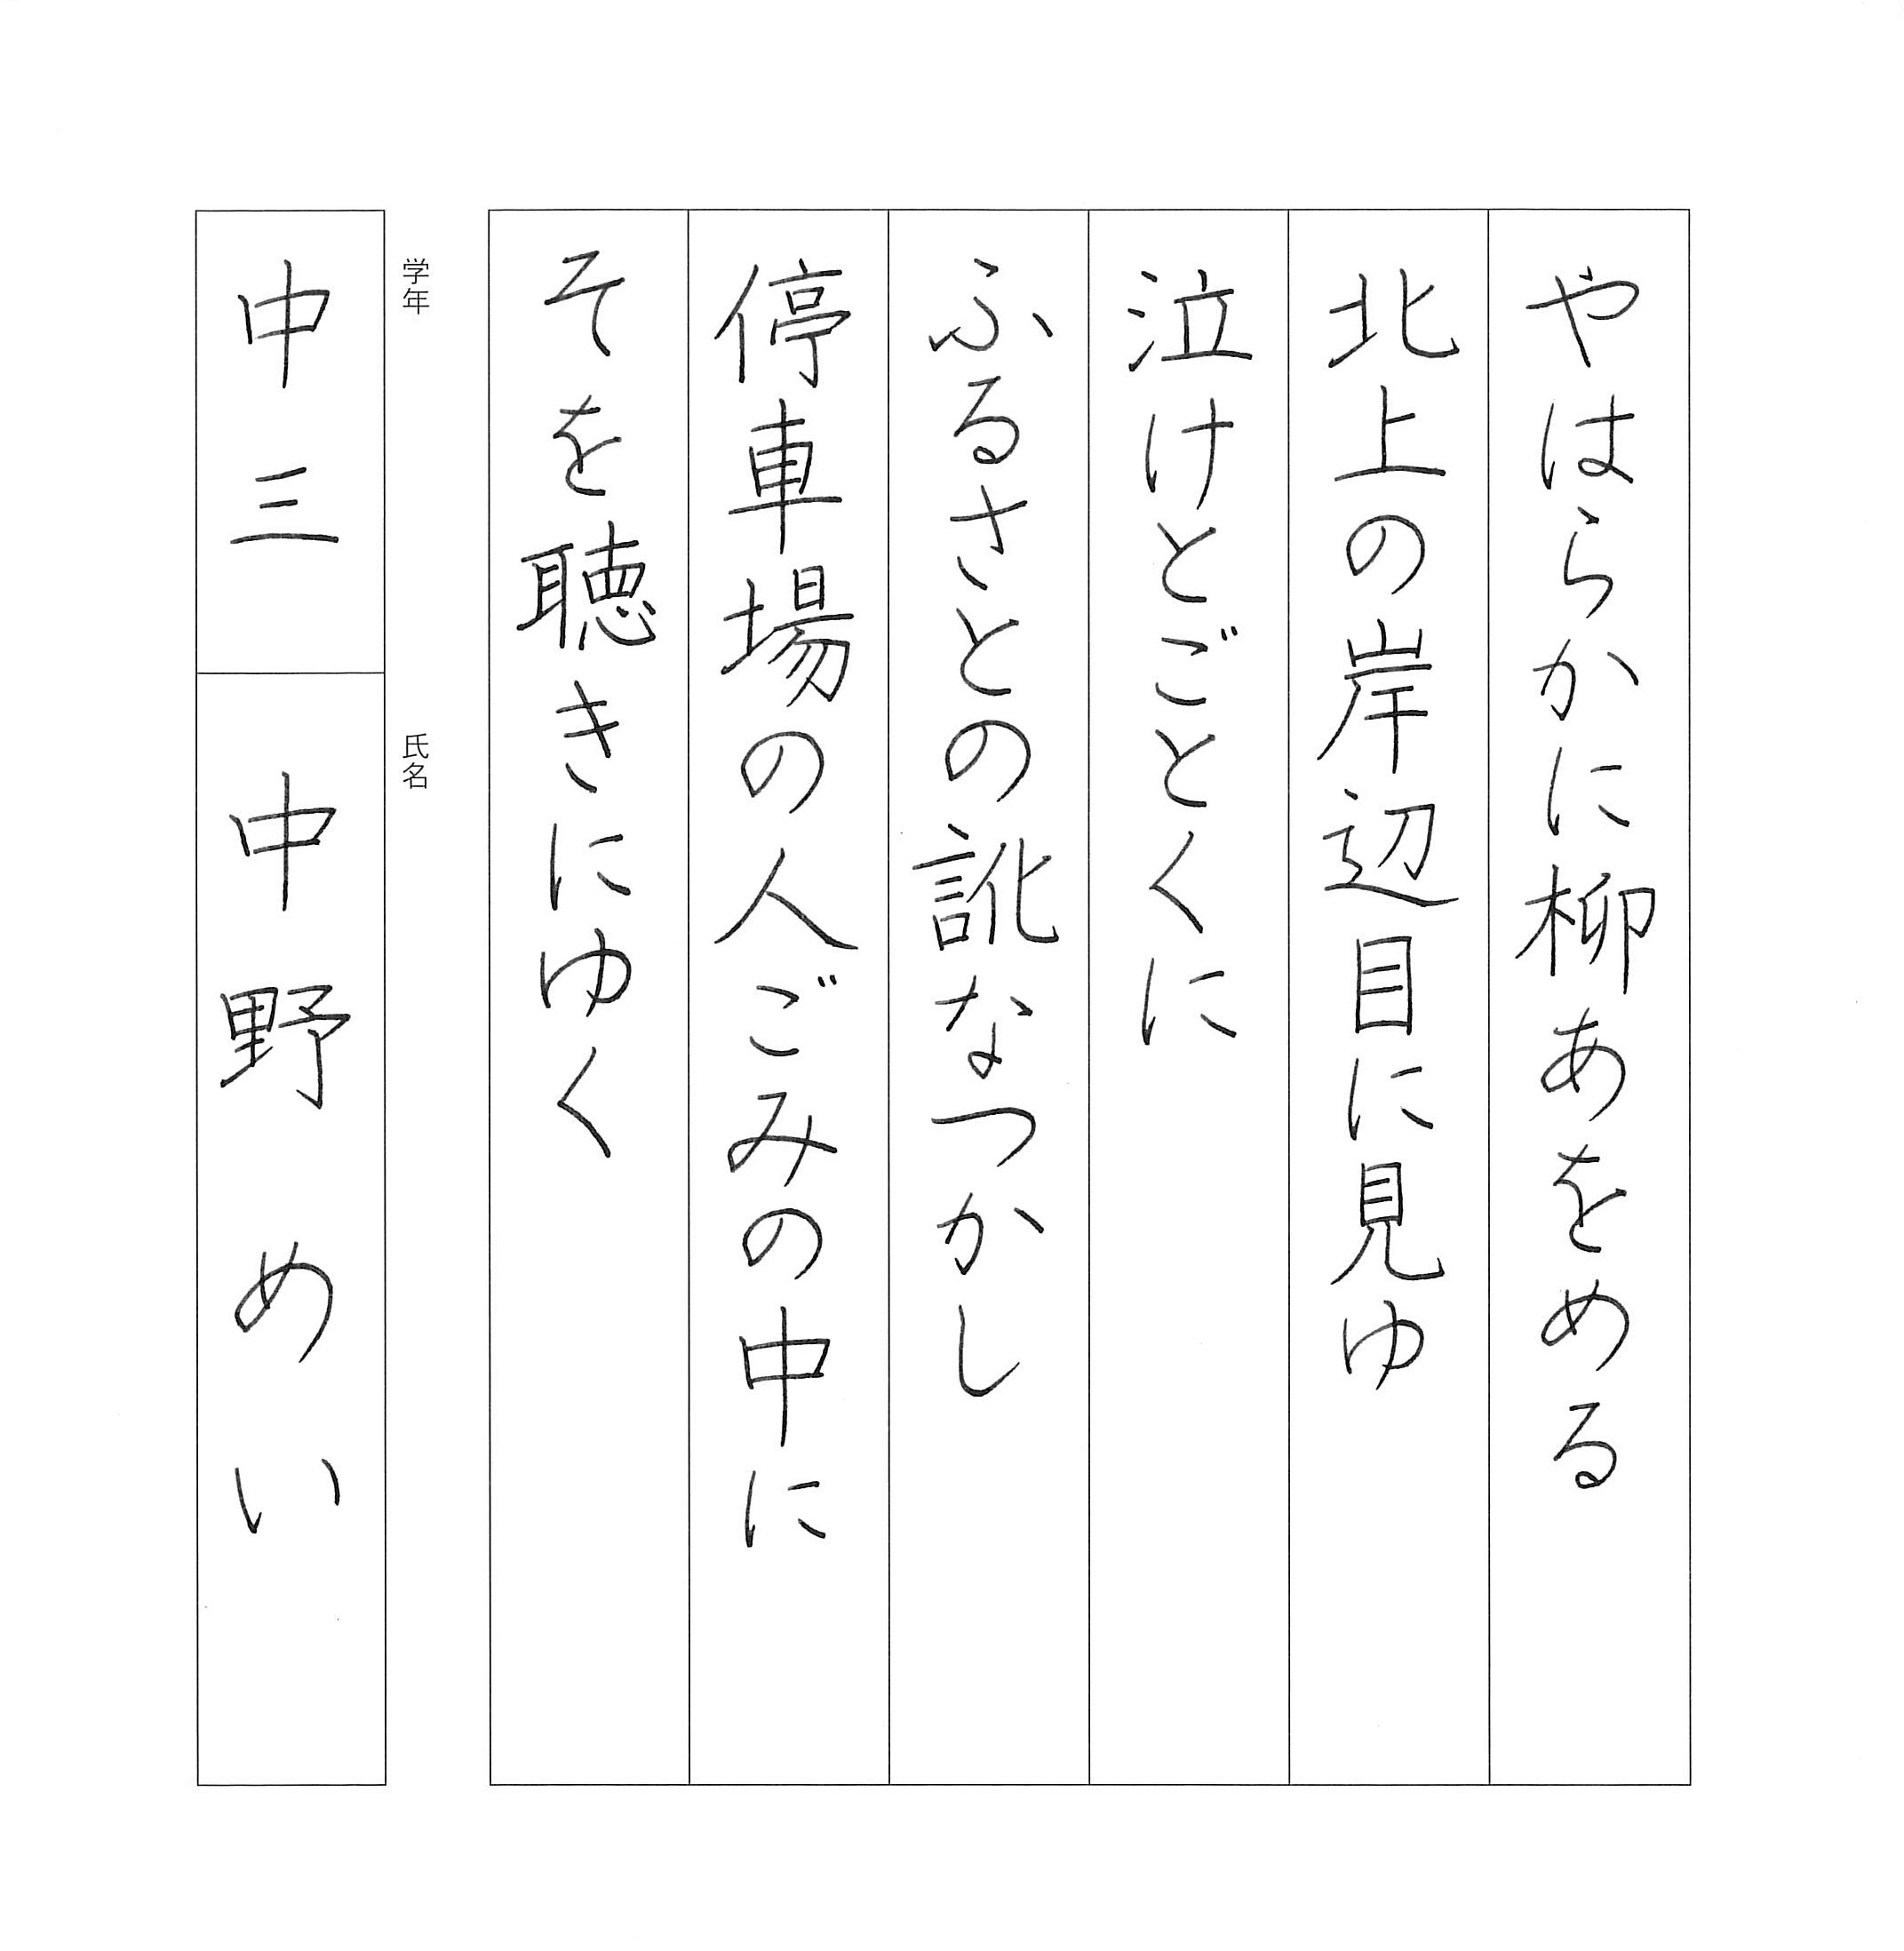 やはらかに柳あをめる
北上の岸辺目に見ゆ
泣けとごとくに
ふるさとの訛なつかし
停車場の人ごみの中に
そを聴きにゆく
学年
中三
氏名
中野めい